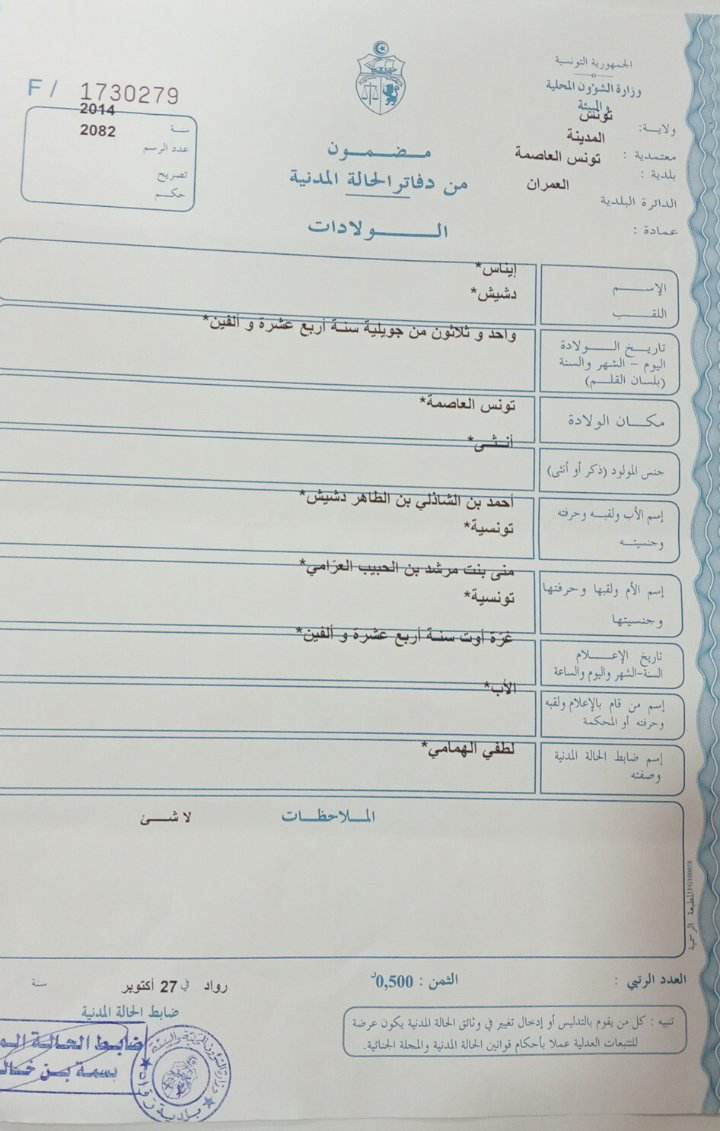 الجمهورية التونسية
وزارة الشؤون المحلية
والبيئة
ولاية: تونس
معتمدية : المدينة
بلدية : تونس العاصمة
الدائرة البلدية العمران
عمادة :
F / 1730279
سنة 2014
عدد الرسم 2082
تصريح
حكم
مضمون
من دفاتر الحالة المدنية
الولادات
الإسم إيناس*
اللقب دشيش*
تاريخ الولادة واحد و ثلاثون من جويلية سنة أربع عشرة و ألفين*
اليوم - الشهر والسنة
(بلسان القلم)
مكان الولادة تونس العاصمة*
جنس المولود (ذكر أو أنثى) أنثى*
إسم الأب ولقبه وحرفته أحمد بن الشاذلي بن الطاهر دشيش*
وجنسيته تونسية*
إسم الأم ولقبها وحرفتها منى بنت مرشد بن الحبيب العزامي*
وجنسيتها تونسية*
تاريخ الإعلام غرّة أوت سنة أربع عشرة و ألفين*
السنة-الشهر واليوم والساعة
إسم من قام بالإعلام ولقبه الأب*
وحرفته أو المحكمة
إسم ضابط الحالة المدنية لطفي الهمامي*
وصفته
الملاحظات لا شئ
المطبعة الرسمية
العدد الرتبي : الثمن : 0,500د
رواد في 27 أكتوبر سنة
ضابط الحالة المدنية
تنبيه : كل من يقوم بالتدليس أو إدخال تغيير في وثائق الحالة المدنية يكون عرضة
للتتبعات العدلية عملا بأحكام قوانين الحالة المدنية والمجلة الجنائية.
ضابط الحالة
بسمة بن
بلدية رواد